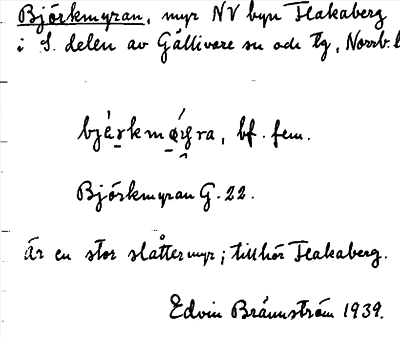 Björkmyran, myr NV byn Flakaberg
i S. delen av Gällivare sn och tg, Norrb. l
bf. fem.
Björkmyran G. 22.
Är en stor slåttermyr; tillhör Flakaberg.
Edvin Brännström 1939.